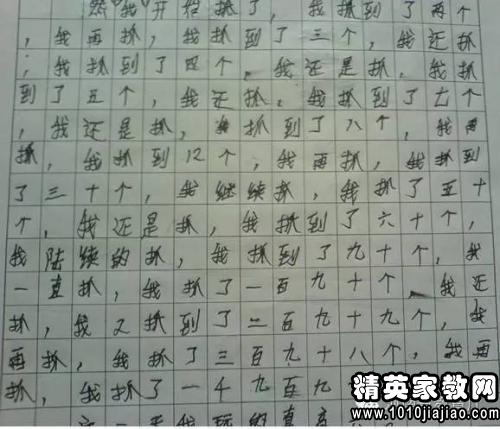 然我开始抓了，我抓到了两个
，我再抓，我抓到了三个，我还抓
，我抓到了四个，我还是抓，我抓
到了五个，我还抓，我抓到了七个
，我还是抓，我抓到了八个，我再
抓，我抓到12个，我再抓，我抓到
了三十个，我继续抓，我抓了五十
个，我还是抓，我抓到了六十个，
我陆续的抓，我抓到了九十个，我
一直抓，我抓了一百九十个，我还
抓，我又抓到了二百九十九个，我
再抓，我抓了三百九十八个，我再
抓，我抓了一千九百九
这一天我玩的真
精英家教网
www.1010jiajiao.com